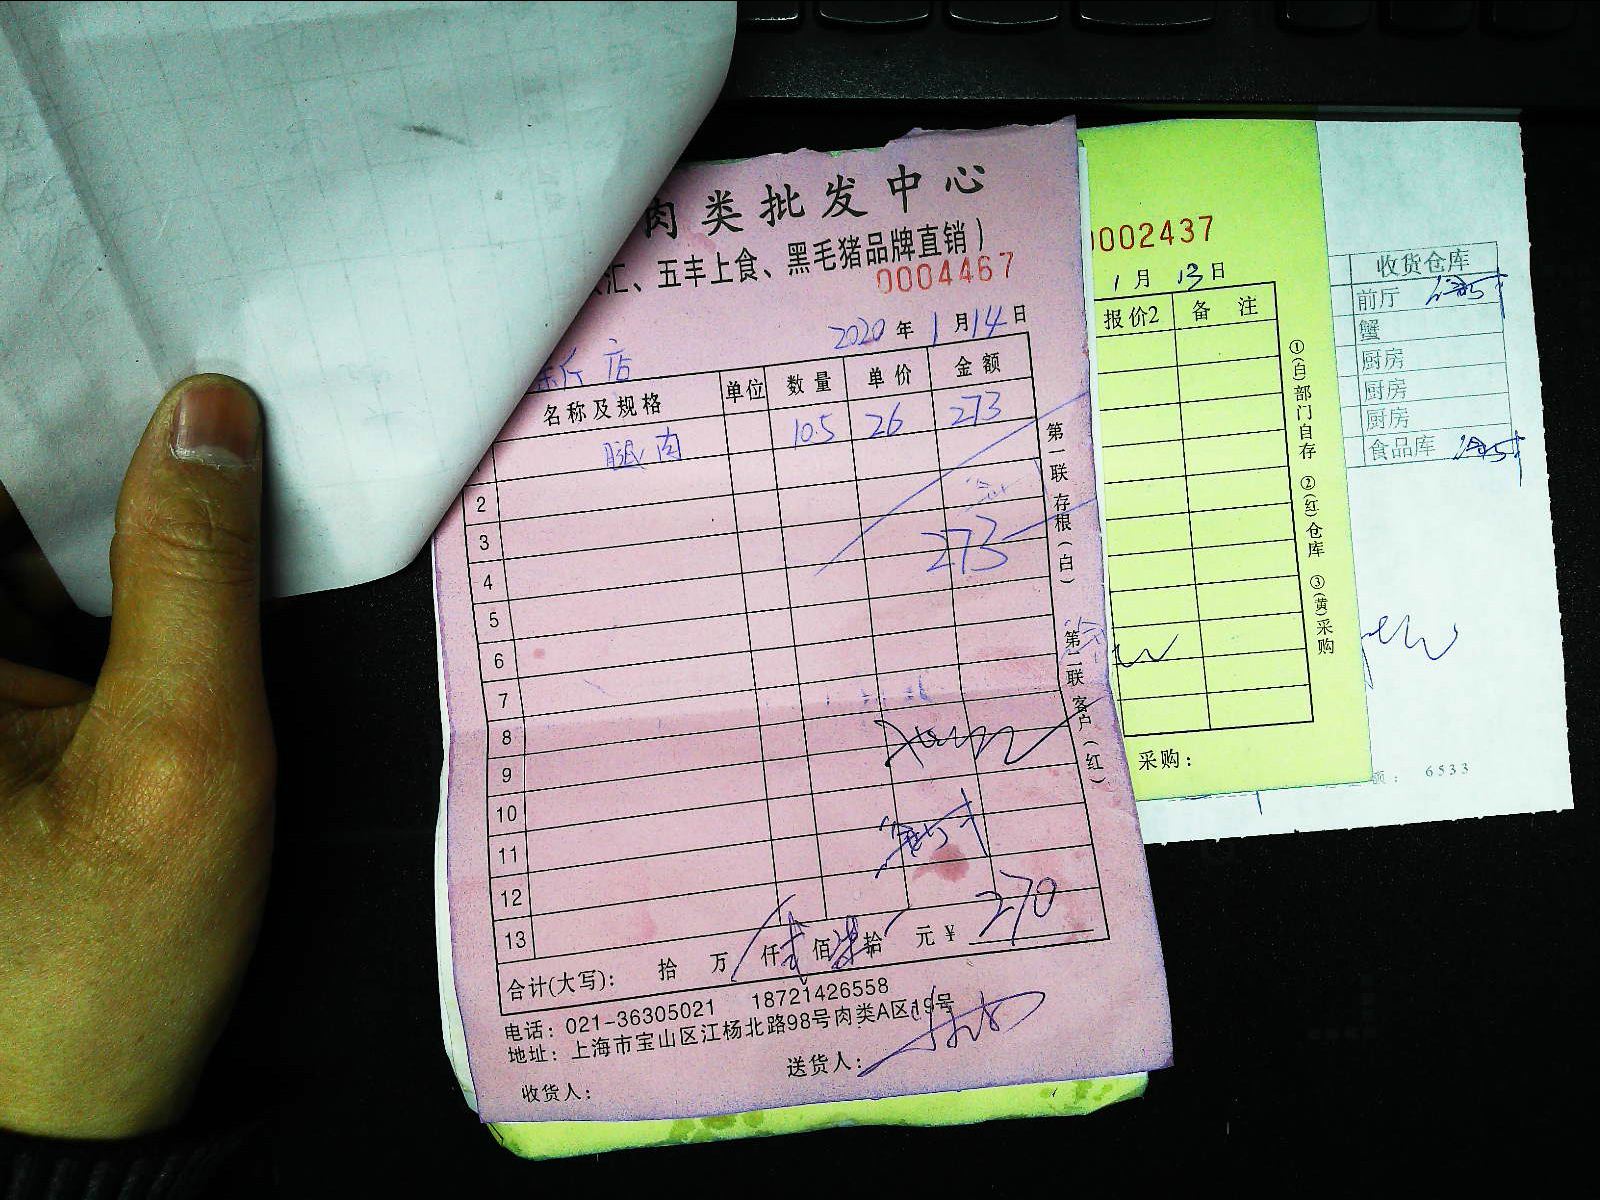 肉类批发中心
汇、五丰上食、黑毛猪品牌直销)
0004467
2020年1月14日
店
名称及规格 单位 数量 单价 金额
腿肉 10.5 26 273
2
3
273
4
5
6
7
8
9
10
11
12
13
合计(大写): 拾 万 仟贰佰柒拾 元¥ 270
电话: 021-36305021 18721426558
地址: 上海市宝山区江杨北路98号肉类A区19号
收货人: 送货人:
第一联 存根(白) 第二联 客户(红)
0002437
1月13日
报价2 备 注
①(白)部门自存 ②(红)仓库 ③(黄)采购
采购:
收货仓库
前厅
蟹
厨房
厨房
厨房
食品库
额: 6533